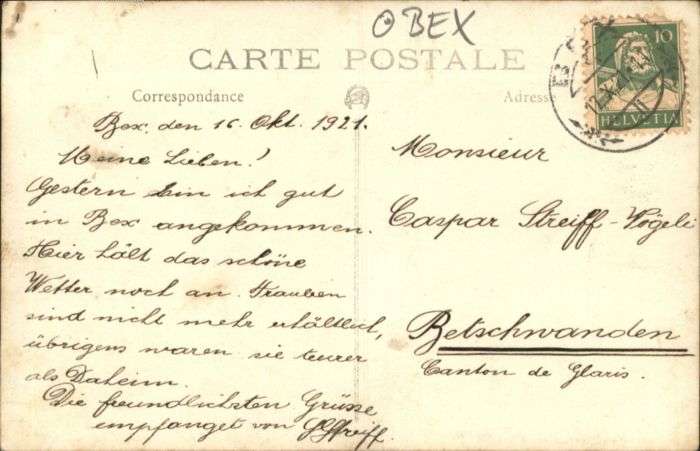 O BEX
CARTE POSTALE
Correspondance
Adresse
10
HELVETIA
Bex, den 16. Okt. 1921.
Meine Lieben!
Gestern bin ich gut
in Bex angekommen.
Hier hält das schöne
Wetter noch an. Trauben
sind nicht mehr erhältlich,
übrigens waren sie teurer
als Daheim.
Die freundlichsten Grüsse
empfanget von
Monsieur
Caspar Streiff-Vögeli
Betschwanden
Canton de Glaris.